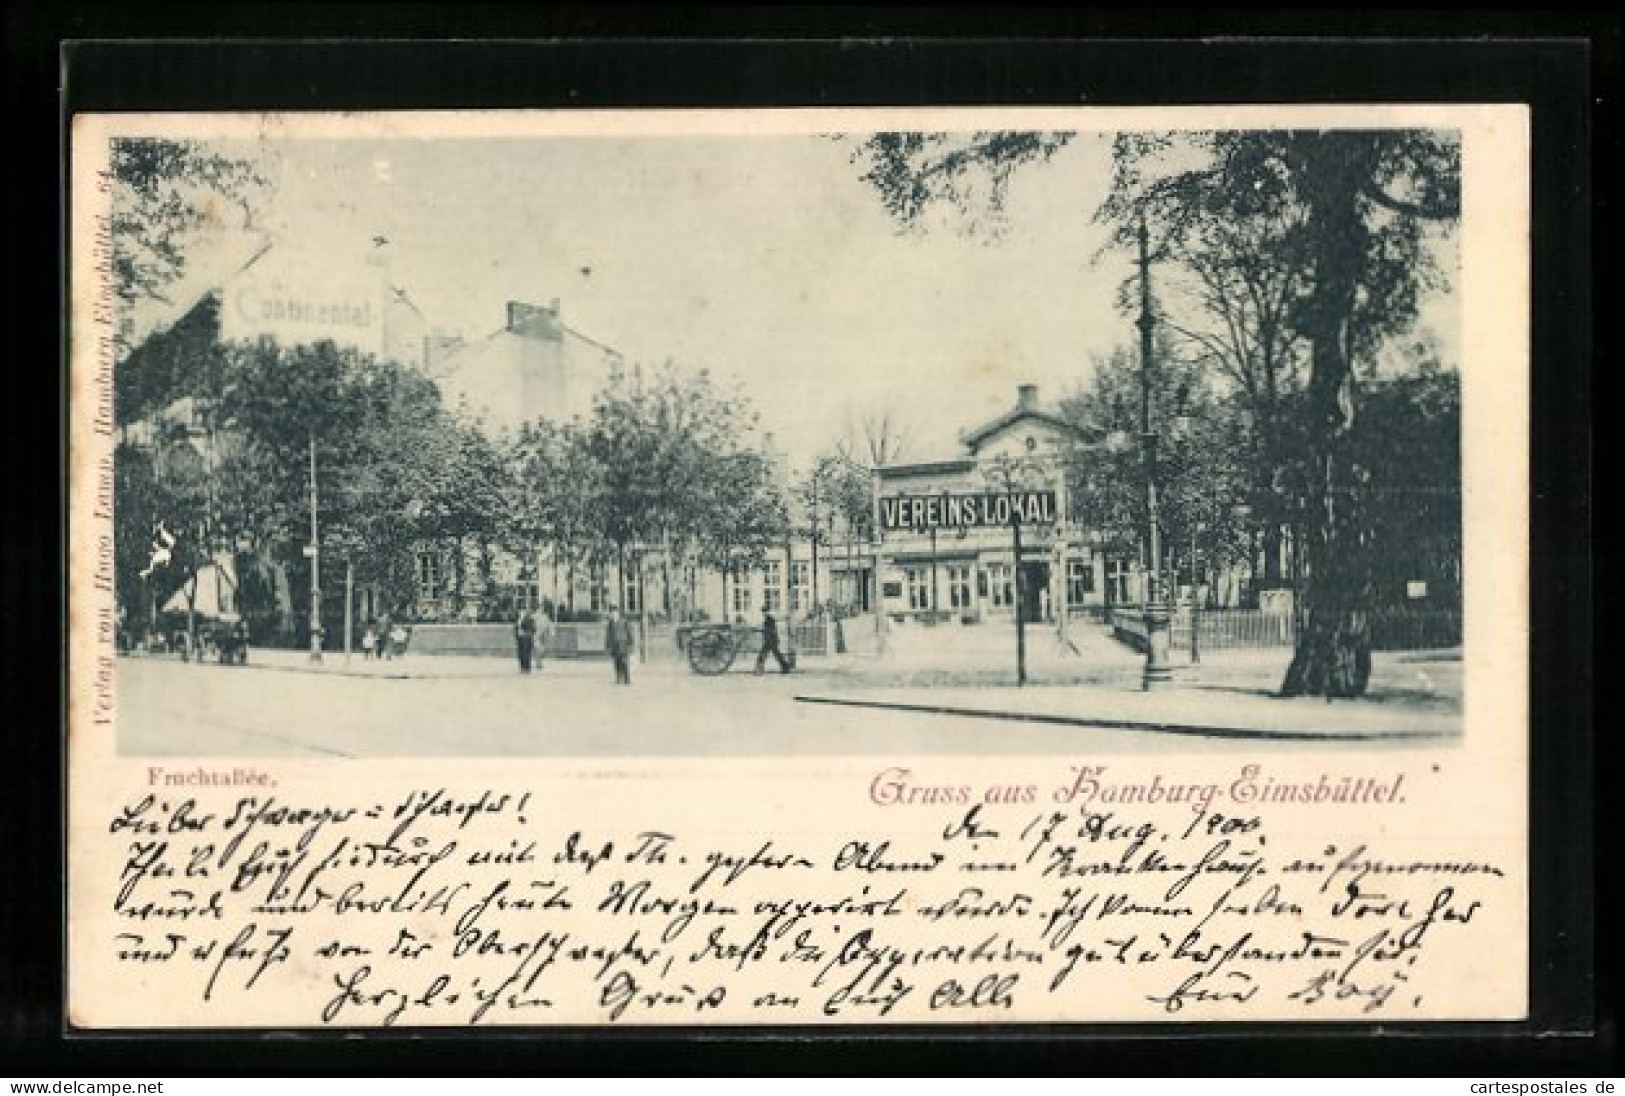 Verlag von Hugo Hamburg-Eimsbüttel. 64
Continental
VEREINS LOKAL
Fruchtallée.
Gruss aus Hamburg-Eimsbüttel.
Lieber Schwager u Schwester!
den 17 Aug. 1900.
Theile Euch hiedurch mit daß Th. gestern Abend im Krankenhause aufgenommen
wurde und bereits heute Morgen opperirt wurde. Ich komme soeben dort her
und erfuhr von der Oberschwester, daß die Opperation gut überstanden sei.
Herzlichen Gruß an Euch Alle Euer
cartespostales de